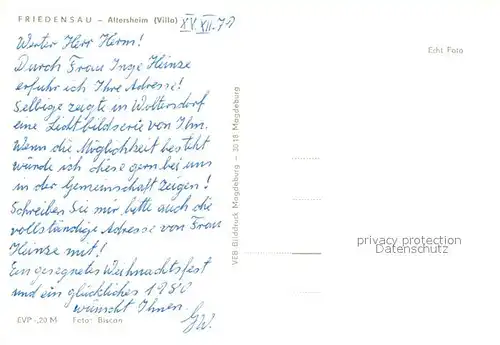 FRIEDENSAU – Altersheim (Villa) XV. XII. 79
Werter Herr Herm!
Durch Frau Inge Heinze
erfuhr ich Ihre Adresse!
Selbige zeigte in Woltersdorf
eine Lichtbildserie von Ihn.
Wenn die Möglichkeit besteht
würde ich diese gern bei uns
in der Gemeinschaft zeigen!
Schreiben Sie mir bitte auch die
vollständige Adresse von Frau
Heinze mit!
Ein gesegnetes Weihnachtsfest
und ein glückliches 1980
wünscht Ihnen.
GW.
EVP -,20 M Foto: Biscan
VEB Bilddruck Magdeburg – 3018 Magdeburg
Echt Foto
privacy protection
Datenschutz